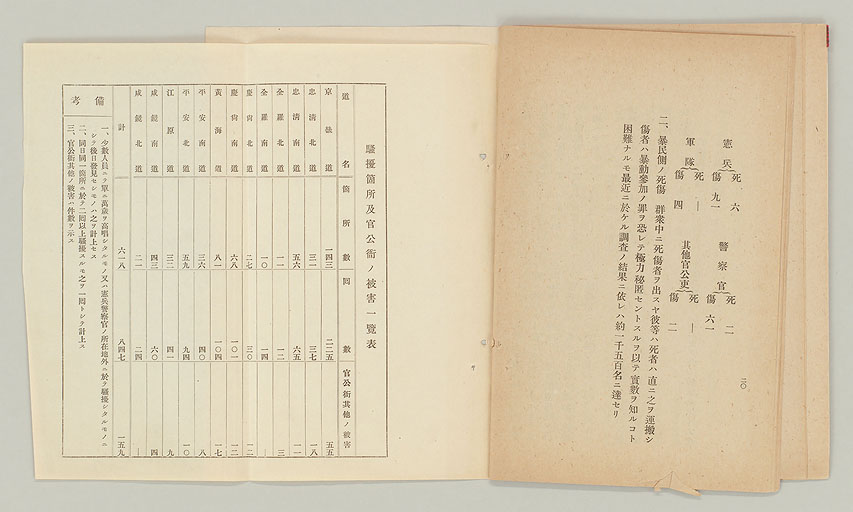 憲兵 死 六 傷 九一 警察官 死 二 傷 六一
軍隊 死 ― 傷 四 其他官公吏 死 ― 傷 二
二、暴民側ノ死傷 群衆中ニ死傷者ヲ出スヤ彼等ハ死者ハ直ニ之ヲ運搬シ
傷者ハ暴動參加ノ罪ヲ恐レテ極力秘匿セントスルヲ以テ實數ヲ知ルコト
困難ナルモ最近ニ於ケル調査ノ結果ニ依レハ約一千五百名ニ達セリ
二〇
騷擾箇所及官公衙ノ被害一覽表
道名 箇所數 回數 官公衙其他ノ被害
京畿道 一四三 二二五 五五
忠清北道 三一 三七 一八
忠清南道 五六 六五 一一
全羅北道 一一 一二 三
全羅南道 一〇 一四 ―
慶尚北道 二七 三〇 一二
慶尚南道 六八 一〇一 一二
黃海道 八一 一〇四 一七
平安南道 三六 四〇 八
平安北道 五九 九四 一〇
江原道 三二 四一 九
咸鏡南道 四三 六〇 四
咸鏡北道 二一 二四 ―
計 六一八 八四七 一五九
備考
一、少數人員ニテ單ニ萬歲ヲ高唱シタルモノ又ハ憲兵警察官ノ所在地外ニ於テ騷擾シタルモノニ
シテ後日發見セシモノハ之ヲ計上セス
二、同日同一箇所ニ於テ二回以上騷擾スルモ之ヲ一回トシテ計上ス
三、官公衙其他ノ被害ハ件數ヲ示ス